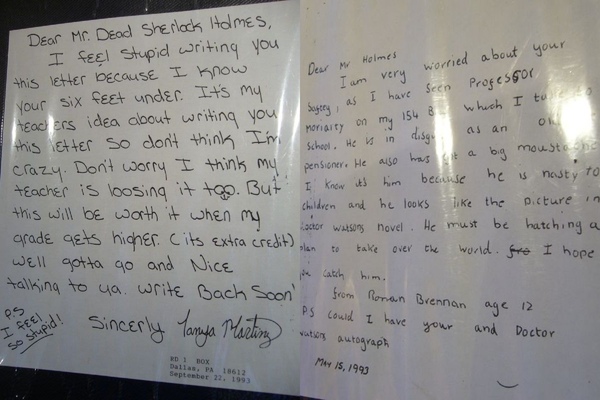 Dear Mr. Dead Sherlock Holmes,
I feel Stupid writing you
this letter because I know
your six feet under. It's my
teachers idea about writing you
this letter so don't think I'm
crazy. Don't worry I think my
teacher is loosing it too. But
this will be worth it when my
grade gets higher. (its extra credit)
well gotta go and Nice
talking to ya. write Back Soon!
Sincerly Tanya Martinez
P.S
I FEEL
SO STUPID!
RD 1 BOX
Dallas, PA 18612
September 22, 1993
Dear Mr Holmes
I am very worried about your
safety, as I have seen Professor
Moriarty on my 154 Bus which I to
school. He is in disguise as an old
pensioner. He also has got a big moustache
I know it's him because he is nasty to
children and he looks like the picture in
Doctor watsons novel. He must be hatching a
plan to take over the world. I hope
you catch him.
from Ronan Brennan age 12
PS could I have your and Doctor
watsons autograph
MAY 15, 1993